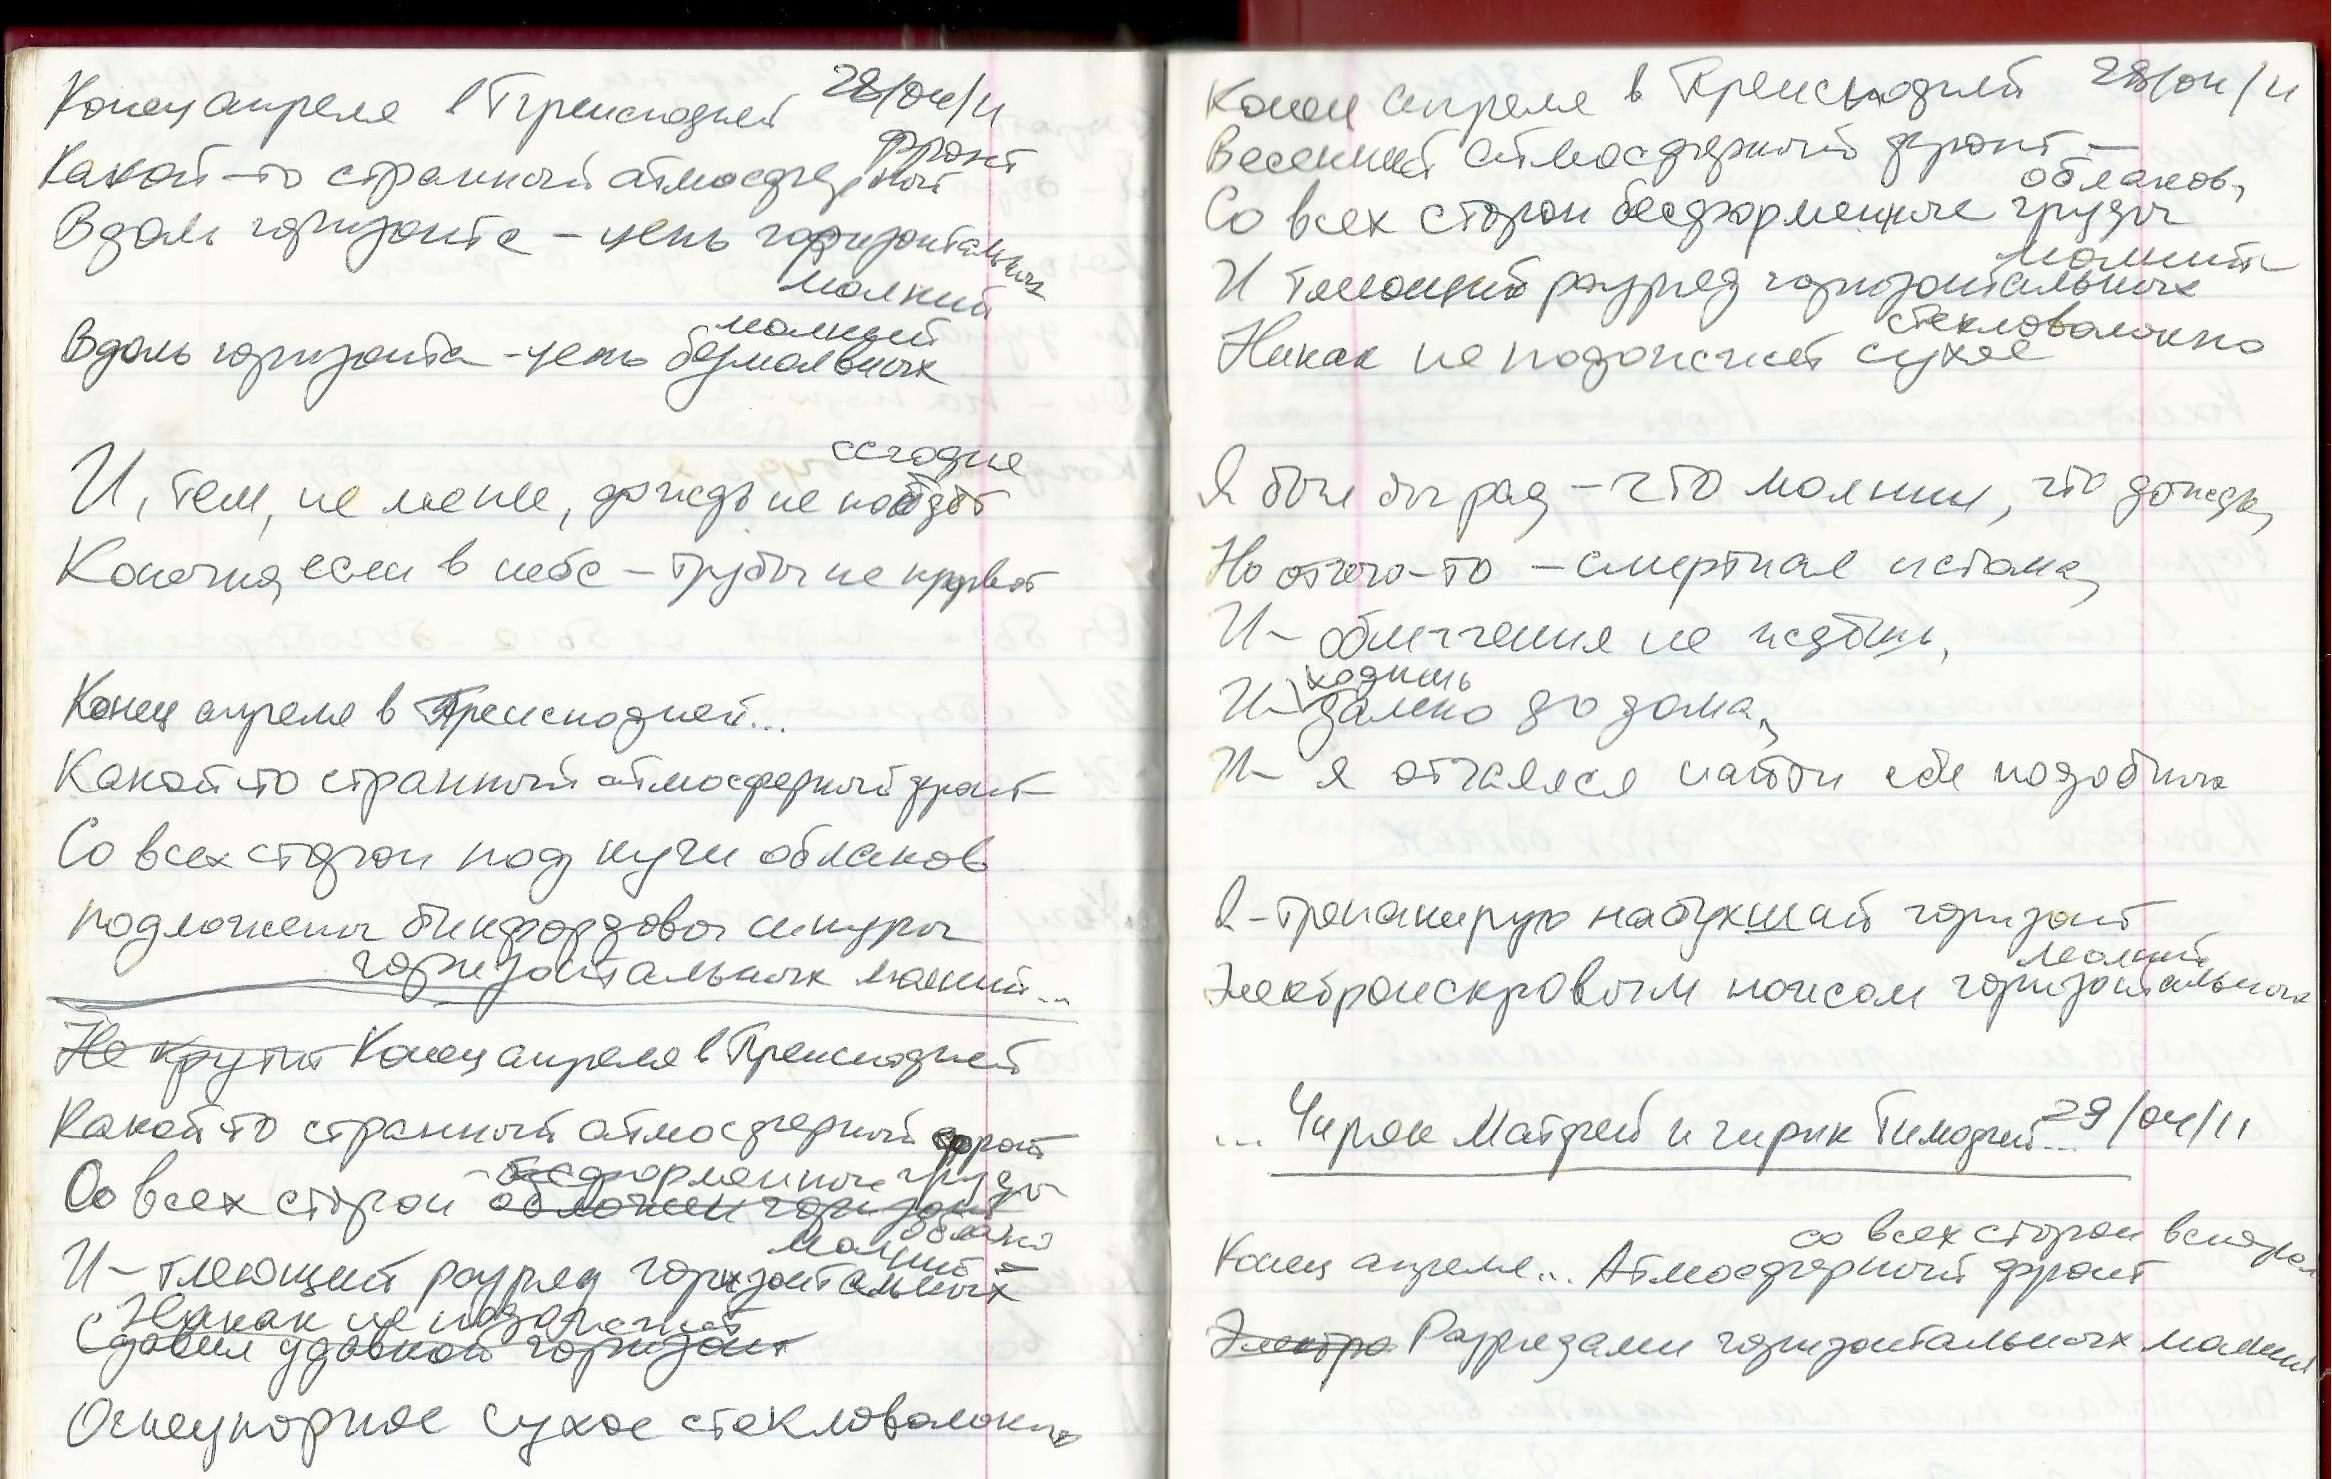 Конец апреля в Преисподней 28/04/11
Какой-то странный атмосферный фронт
Вдоль горизонта – цепь горизонтальных молний
Вдоль горизонта – цепь безмолвных молний
И, тем, не менее, дождь не пойдёт сегодня
Конечно, если в небе – трубы не прорвёт
Конец апреля в Преисподней...
Какой то странный атмосферный фронт
Со всех сторон под кучи облаков
подложены бикфордовы шнуры
горизонтальных молний...
Не крутит Конец апреля в Преисподней
Какой то странный атмосферный фронт
Со всех сторон обложен горизонт - бесформенные груды облаков
И – тлеющий разряд горизонтальных молний –
Никак не подожжет
Сдавил удавкой горизонт
Огнеупорное сухое стекловолокно
Конец апреля в Преисподней 28/04/11
Весенний атмосферный фронт –
Со всех сторон бесформенные груды облаков,
И тлеющий разряд горизонтальных молний
Никак не подожжет сухое стекловолокно
Я был бы рад – что молнии, что дождь,
Но отчего-то – смертная истома,
И – облегченья не ждёшь,
И – ходишь далеко до дома,
И – я отчаялся найти себе подобных
Я – трепанирую набухший горизонт
Электроискровым ножом горизонтальных молний
... Чиряк Матфей и чирик Тимофей... 29/04/11
Конец апреля... Атмосферный фронт со всех сторон вспорол
Электро Разрядами горизонтальных молний